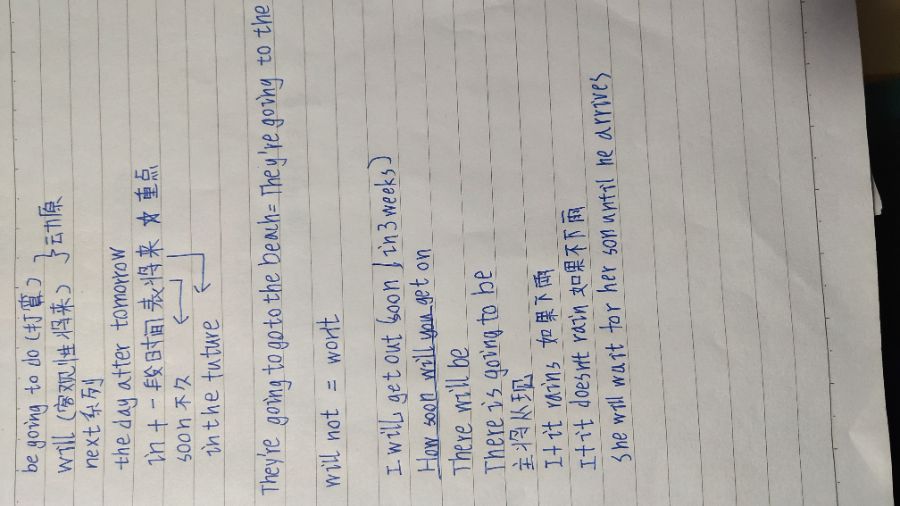 be going to do (打算)
will (客观性将来) } 动原
next系列
the day after tomorrow
in + 一段时间 表将来 ☆ 重点
soon 不久
in the future
They're going to go to the beach = They're going to the
will not = won't
I will get out soon (in 3 weeks)
How soon will you get on
There will be
There is going to be
主将从现
If it rains 如果下雨
If it doesn't rain 如果不下雨
She will wait for her son until he arrives